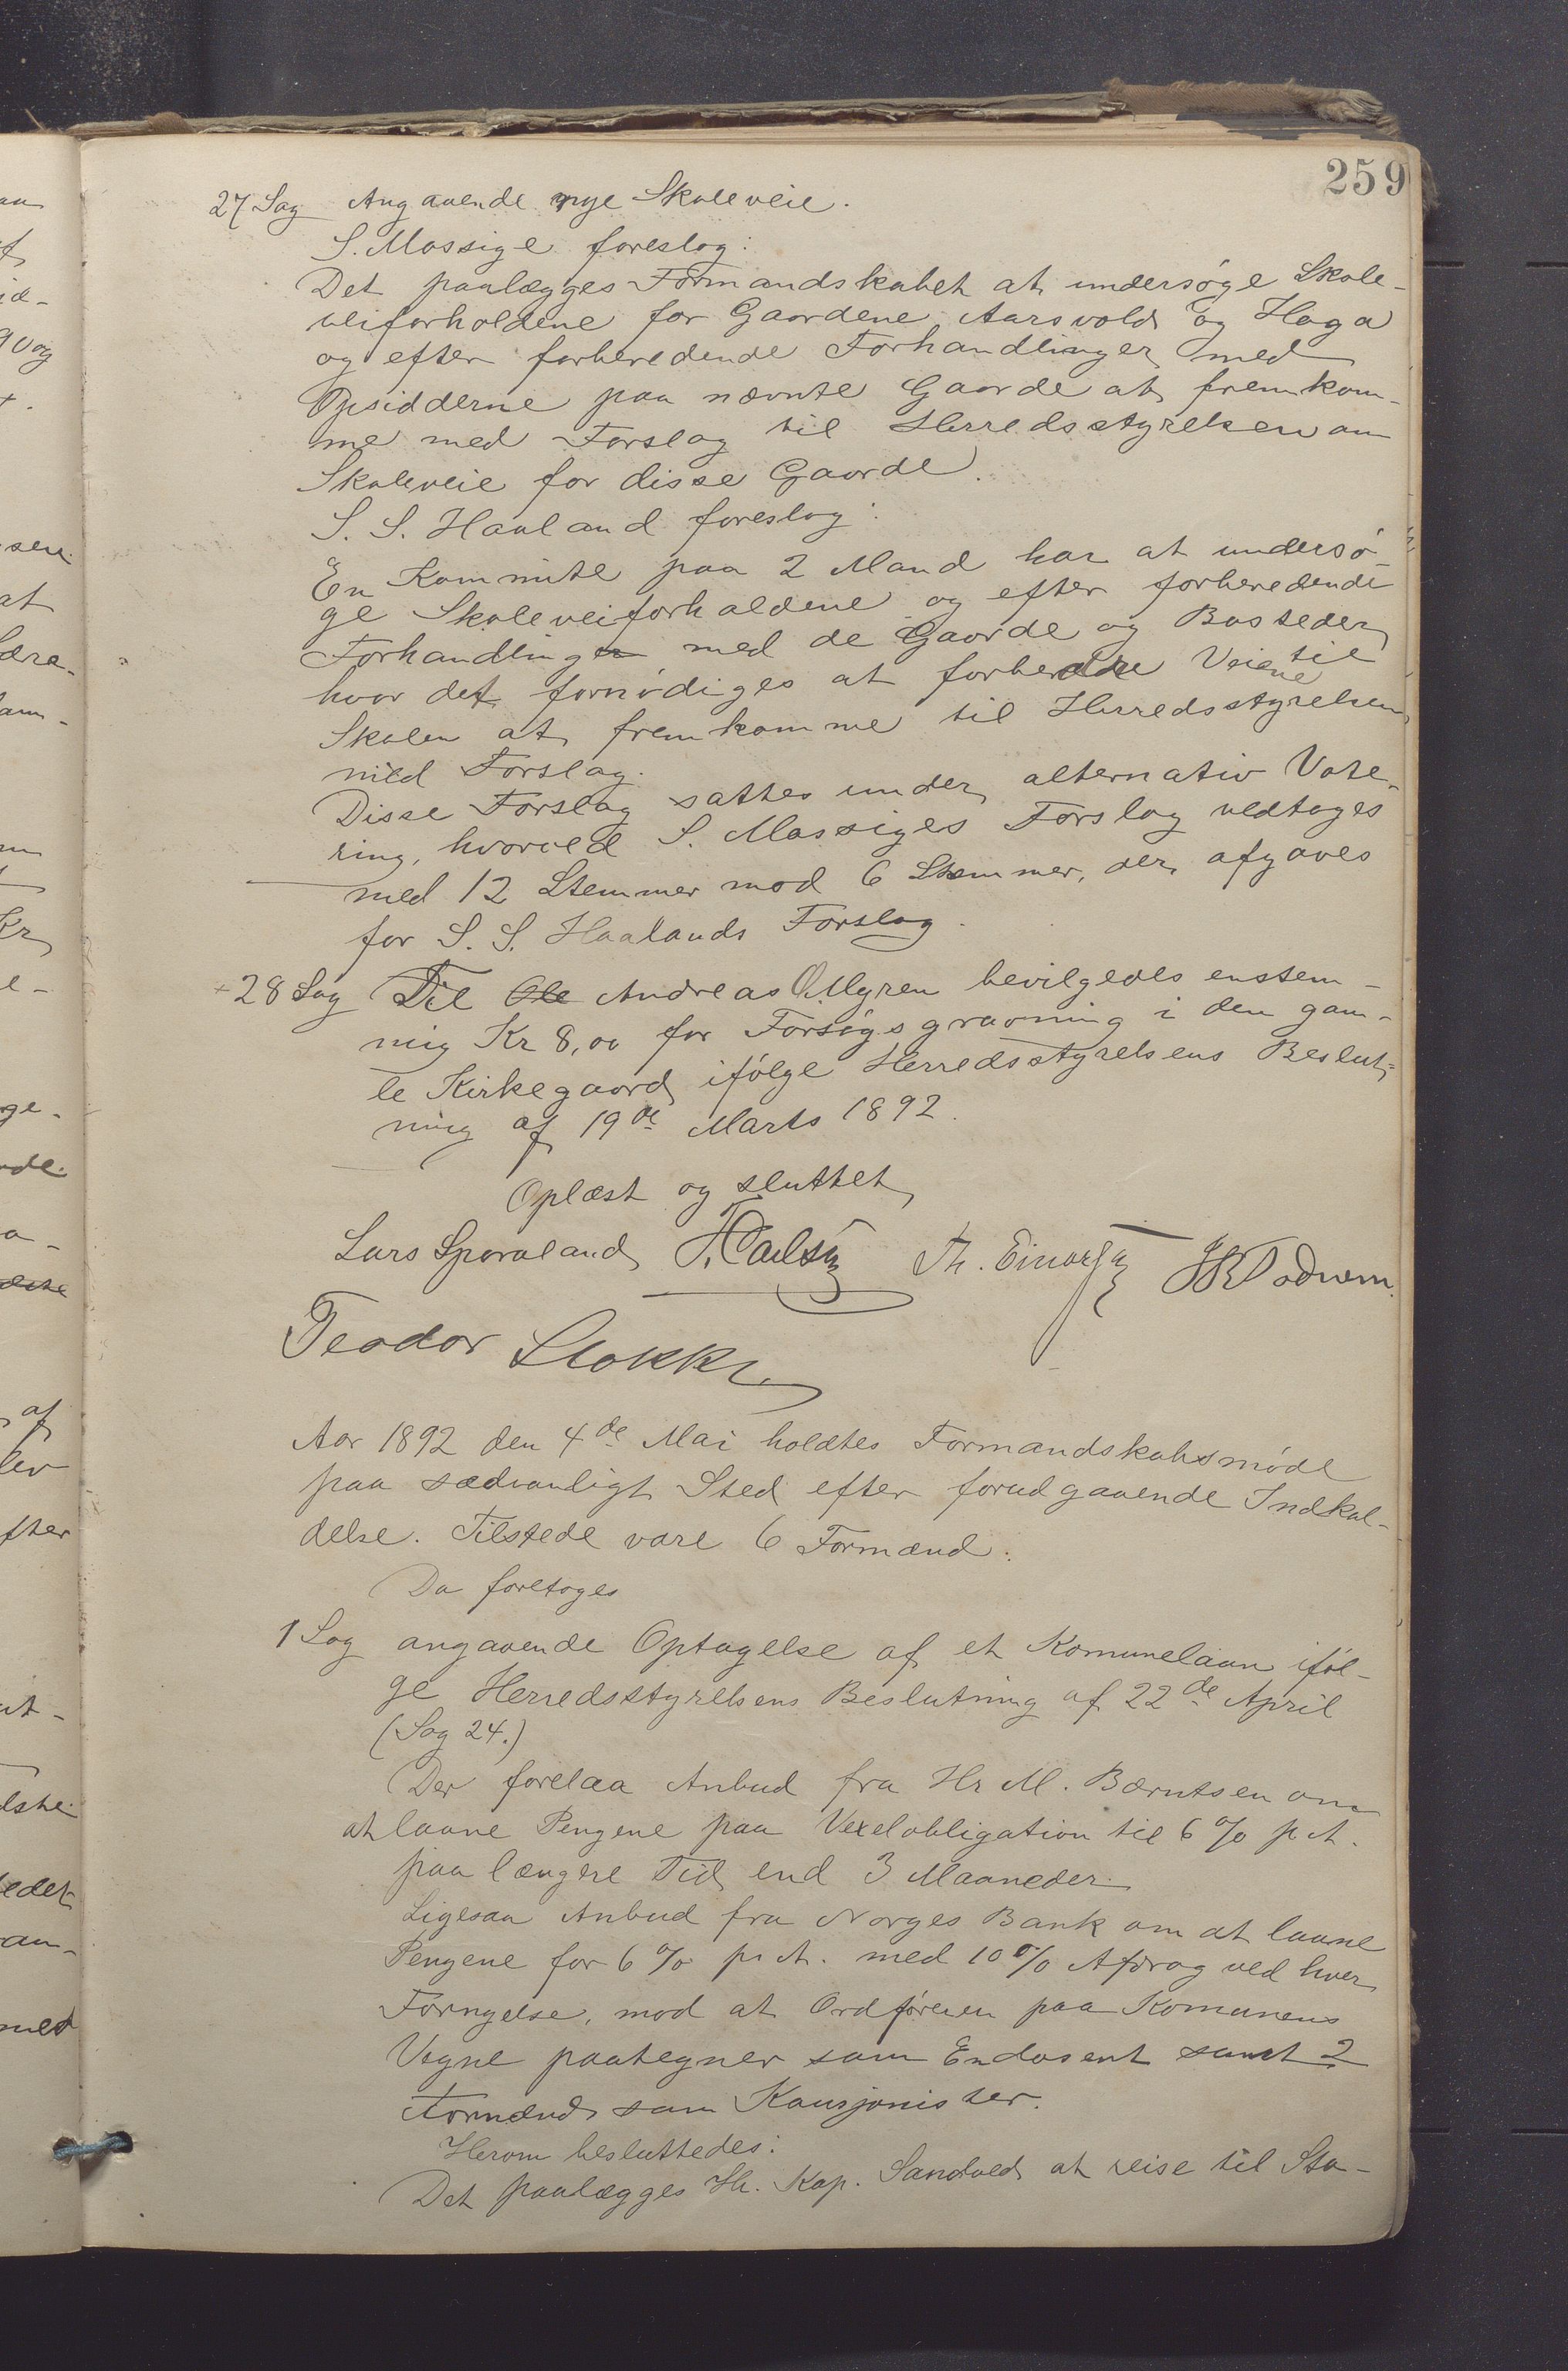 259
27 Sag Angaaende nye Skoleveie.
S. Mossige foreslog:
Det paalægges Formandskabet at undersøge Skole-
veiforholdene for Gaardene Aarsvold og Haga
og efter forberedende Forhandlinger med
Opsidderne paa nævnte Gaarde at fremkom-
me med Forslag til Herredsstyrelsen om
Skoleveie for disse Gaarde.
S. S. Haaland foreslog:
En Kommite paa 2 Mand har at undersø-
ge Skoleveiforholdene og efter forberedende
Forhandling med de Gaarde og Bosteder
hvor det fornødiges at forbedre Veiene til
Skolen at fremkomme til Herredsstyrelsen
med Forslag.
Disse Forslag sattes under alternativ Vote-
ring, hvorved S. Mossiges Forslag vedtoges
med 12 Stemmer mod 6 Stemmer, der afgaves
for S. S. Haalands Forslag.
28 Sag Til Ole Andreas O. Myren bevilgedes enstem-
mig Kr 8,00 for Forsøgsgravning i den gam-
le Kirkegaard ifølge Herredsstyrelsens Beslut-
ning af 19de Marts 1892.
Oplæst og sluttet
Lars Sporaland Th. Einarsen
Teodor Stokke
Aar 1892 den 4de Mai holdtes Formandskabsmøde
paa sædvanligt Sted efter forudgaaende Indkal-
delse. Tilstede vare 6 Formænd.
Da foretoges
1 Sag angaaende Optagelse af et Komunelaan iføl-
ge Herredsstyrelsens Beslutning af 22de April
(Sag 24.)
Der forelaa Anbud fra Hr M. Børntsen om
at laane Pengene paa Vexelobligation til 6 % p. A.
paa længere Tid end 3 Maaneder.
Ligesaa Anbud fra Norges Bank om at laane
Pengene for 6 % pr A. med 10 % Afdrag ved hver
Fornyelse, mod at Ordføreren paa Komunens
Vegne paategner som Endosent samt 2
Formænd som Kausjonister.
Herom besluttedes:
Det paalægges Hr. Kap. Sandved at reise til Sta-